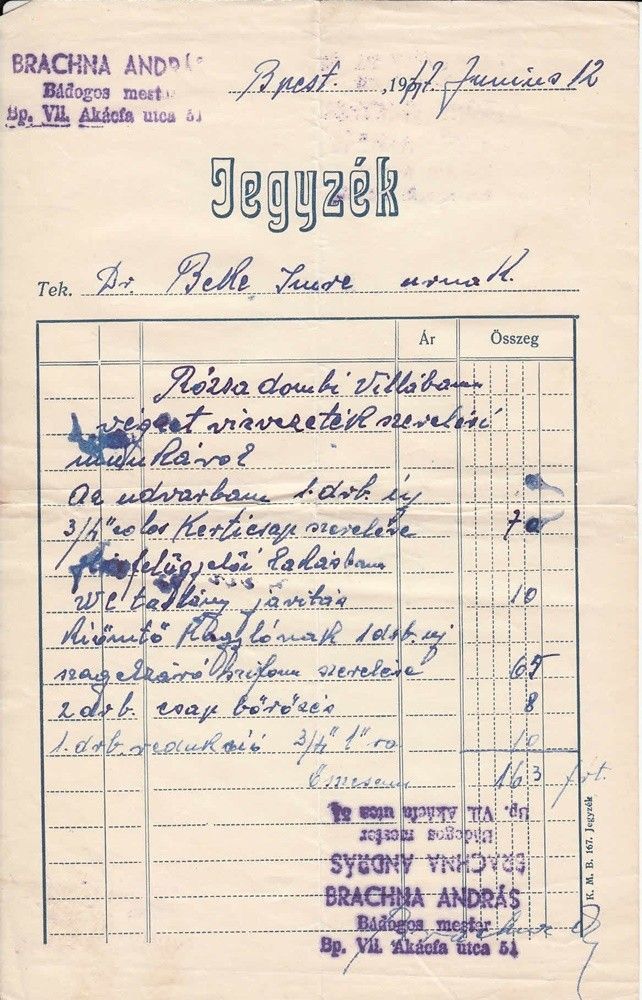 BRACHNA ANDRÁS
Bádogos mester
Bp. VII. Akácfa utca 51
Bpest. , 19 Junius 12
Jegyzék
Tek. Dr. Imre urnak.
Ár Összeg
Rózsadombi Villában
végzet vizvezeték szerelési
munkáról
Az udvarban 1. drb. új
3/4" colos Kerticsap szerelése 70
házfelügyelői lakásban
Wc tartány javitás 10
Kiömtő Kagylónak 1 drb. új
szagelzáró szifon szerelése 65
2 drb. csap bőrözés 8
1. drb. redukció 3/4" 1" ra 10
Össesen 163 frt.
Bp. VII. Akácfa utca 51
Bádogos mester
BRACHNA ANDRÁS
BRACHNA ANDRÁS
Bádogos mester
Bp. VII. Akácfa utca 51
K. M. B. 167. Jegyzék